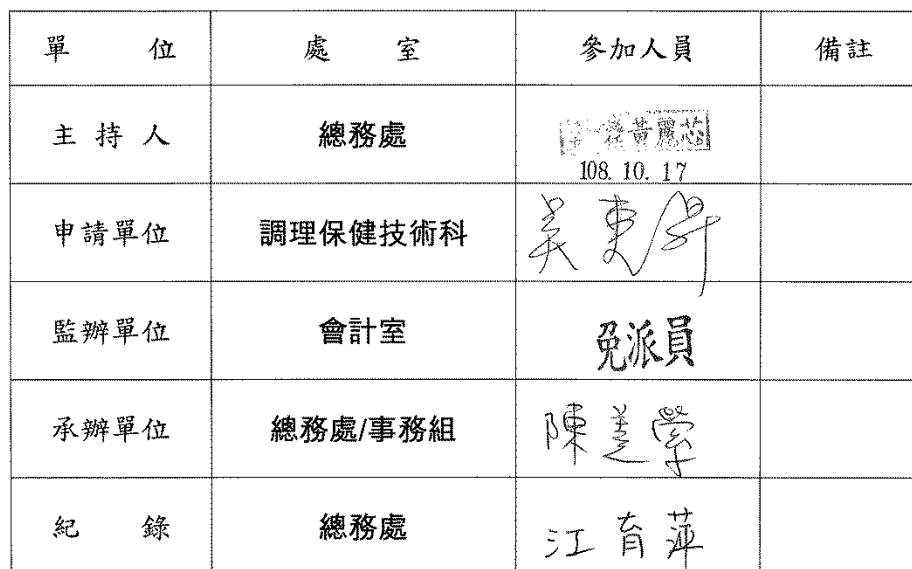 單 位 處 室 參加人員 備註
主 持 人 總務處 黃麗芯
108. 10. 17
申請單位 調理保健技術科 吳東
監辦單位 會計室 免派員
承辦單位 總務處/事務組 陳美
紀 錄 總務處 江育萍